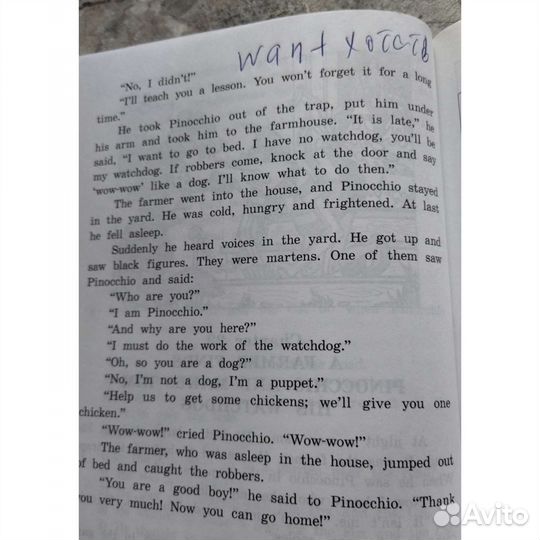 want хотеть
"No, I didn't!"
"I'll teach you a lesson. You won't forget it for a long
time."
He took Pinocchio out of the trap, put him under
his arm and took him to the farmhouse. "It is late," he
said, "I want to go to bed. I have no watchdog, you'll be
my watchdog. If robbers come, knock at the door and say
'wow-wow' like a dog. I'll know what to do then."
The farmer went into the house, and Pinocchio stayed
in the yard. He was cold, hungry and frightened. At last
he fell asleep.
Suddenly he heard voices in the yard. He got up and
saw black figures. They were martens. One of them saw
Pinocchio and said:
"Who are you?"
"I am Pinocchio."
"And why are you here?"
"I must do the work of the watchdog."
"Oh, so you are a dog?"
"No, I'm not a dog, I'm a puppet."
"Help us to get some chickens; we'll give you one
chicken."
"Wow-wow!" cried Pinocchio. "Wow-wow!"
The farmer, who was asleep in the house, jumped out
of bed and caught the robbers.
"You are a good boy!" he said to Pinocchio. "Thank
you very much! Now you can go home!"
Avito